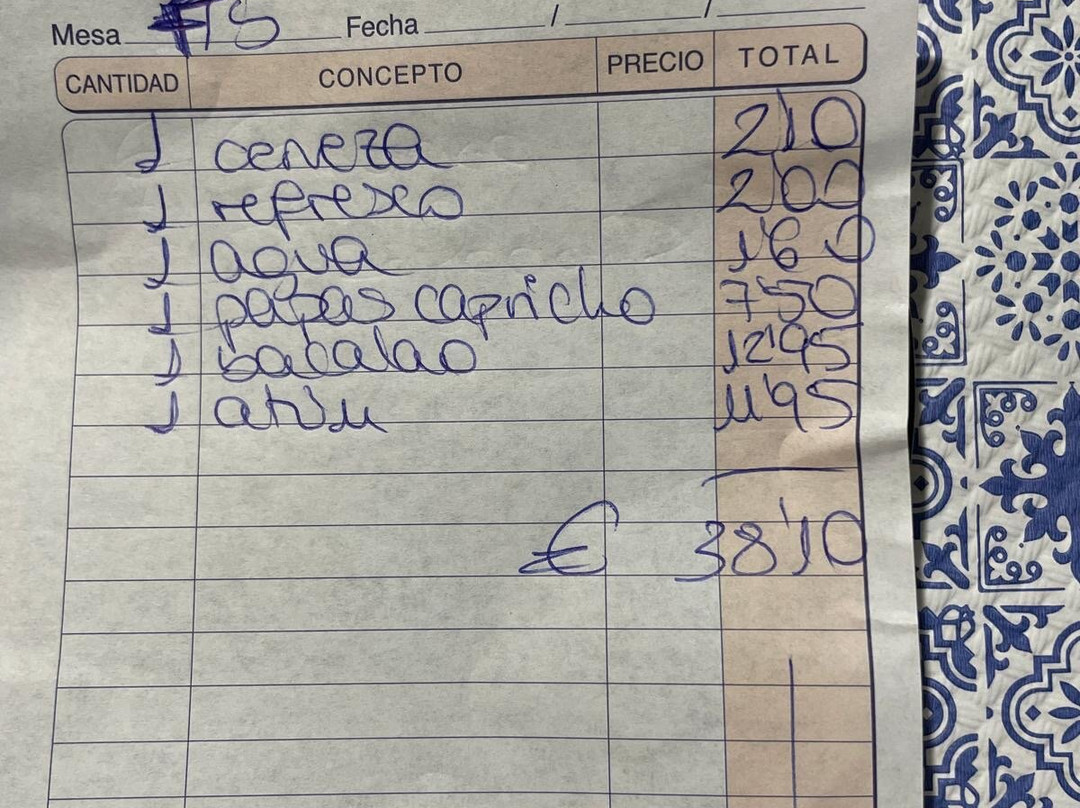 Mesa T5 Fecha / /
CANTIDAD CONCEPTO PRECIO TOTAL
1 cerveza 2'10
1 refresco 2'00
1 agua 1'60
1 papas capricho 7'50
1 bacalao 12'95
1 atún 11'95
€ 38'10